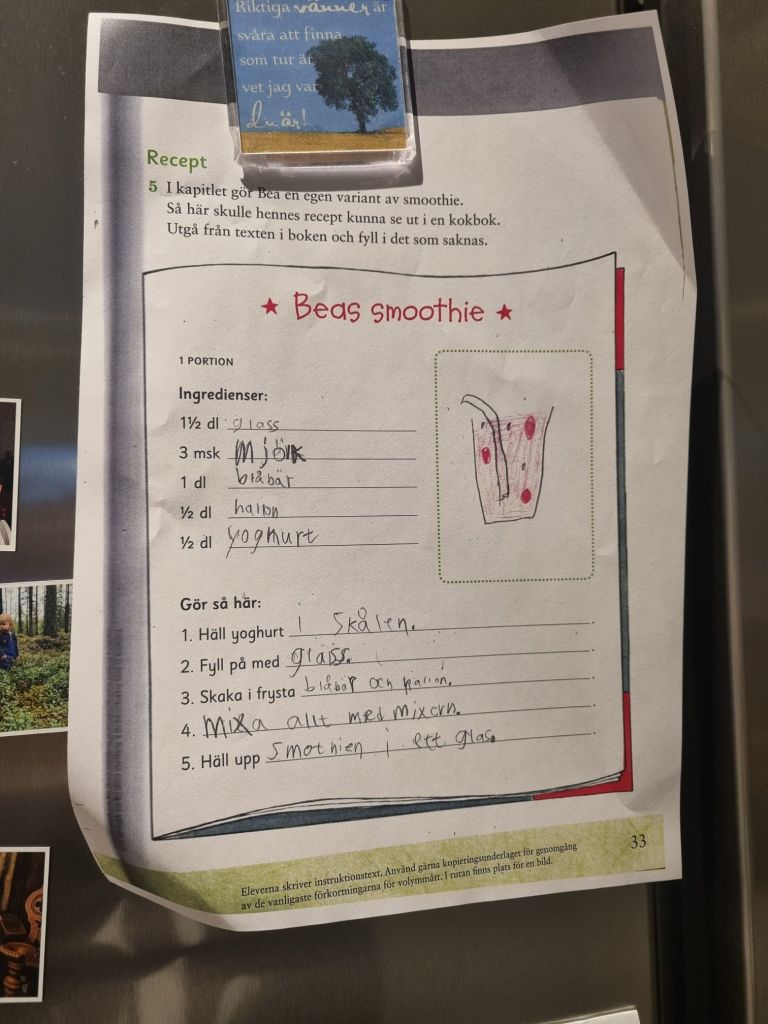 Riktiga vänner är
svåra att finna
som tur är
vet jag var
du är!
Recept
5 I kapitlet gör Bea en egen variant av smoothie.
Så här skulle hennes recept kunna se ut i en kokbok.
Utgå från texten i boken och fyll i det som saknas.
★ Beas smoothie ★
1 PORTION
Ingredienser:
1½ dl glass
3 msk Mjölk
1 dl blåbär
½ dl halon
½ dl yoghurt
Gör så här:
1. Häll yoghurt i skålen.
2. Fyll på med glass.
3. Skaka i frysta blåbär och halion.
4. Mixa allt med mixern.
5. Häll upp smothien i ett glas.
Eleverna skriver instruktionstext. Använd gärna kopieringsunderlaget för genomgång
av de vanligaste förkortningarna för volymmått. I rutan finns plats för en bild.
33